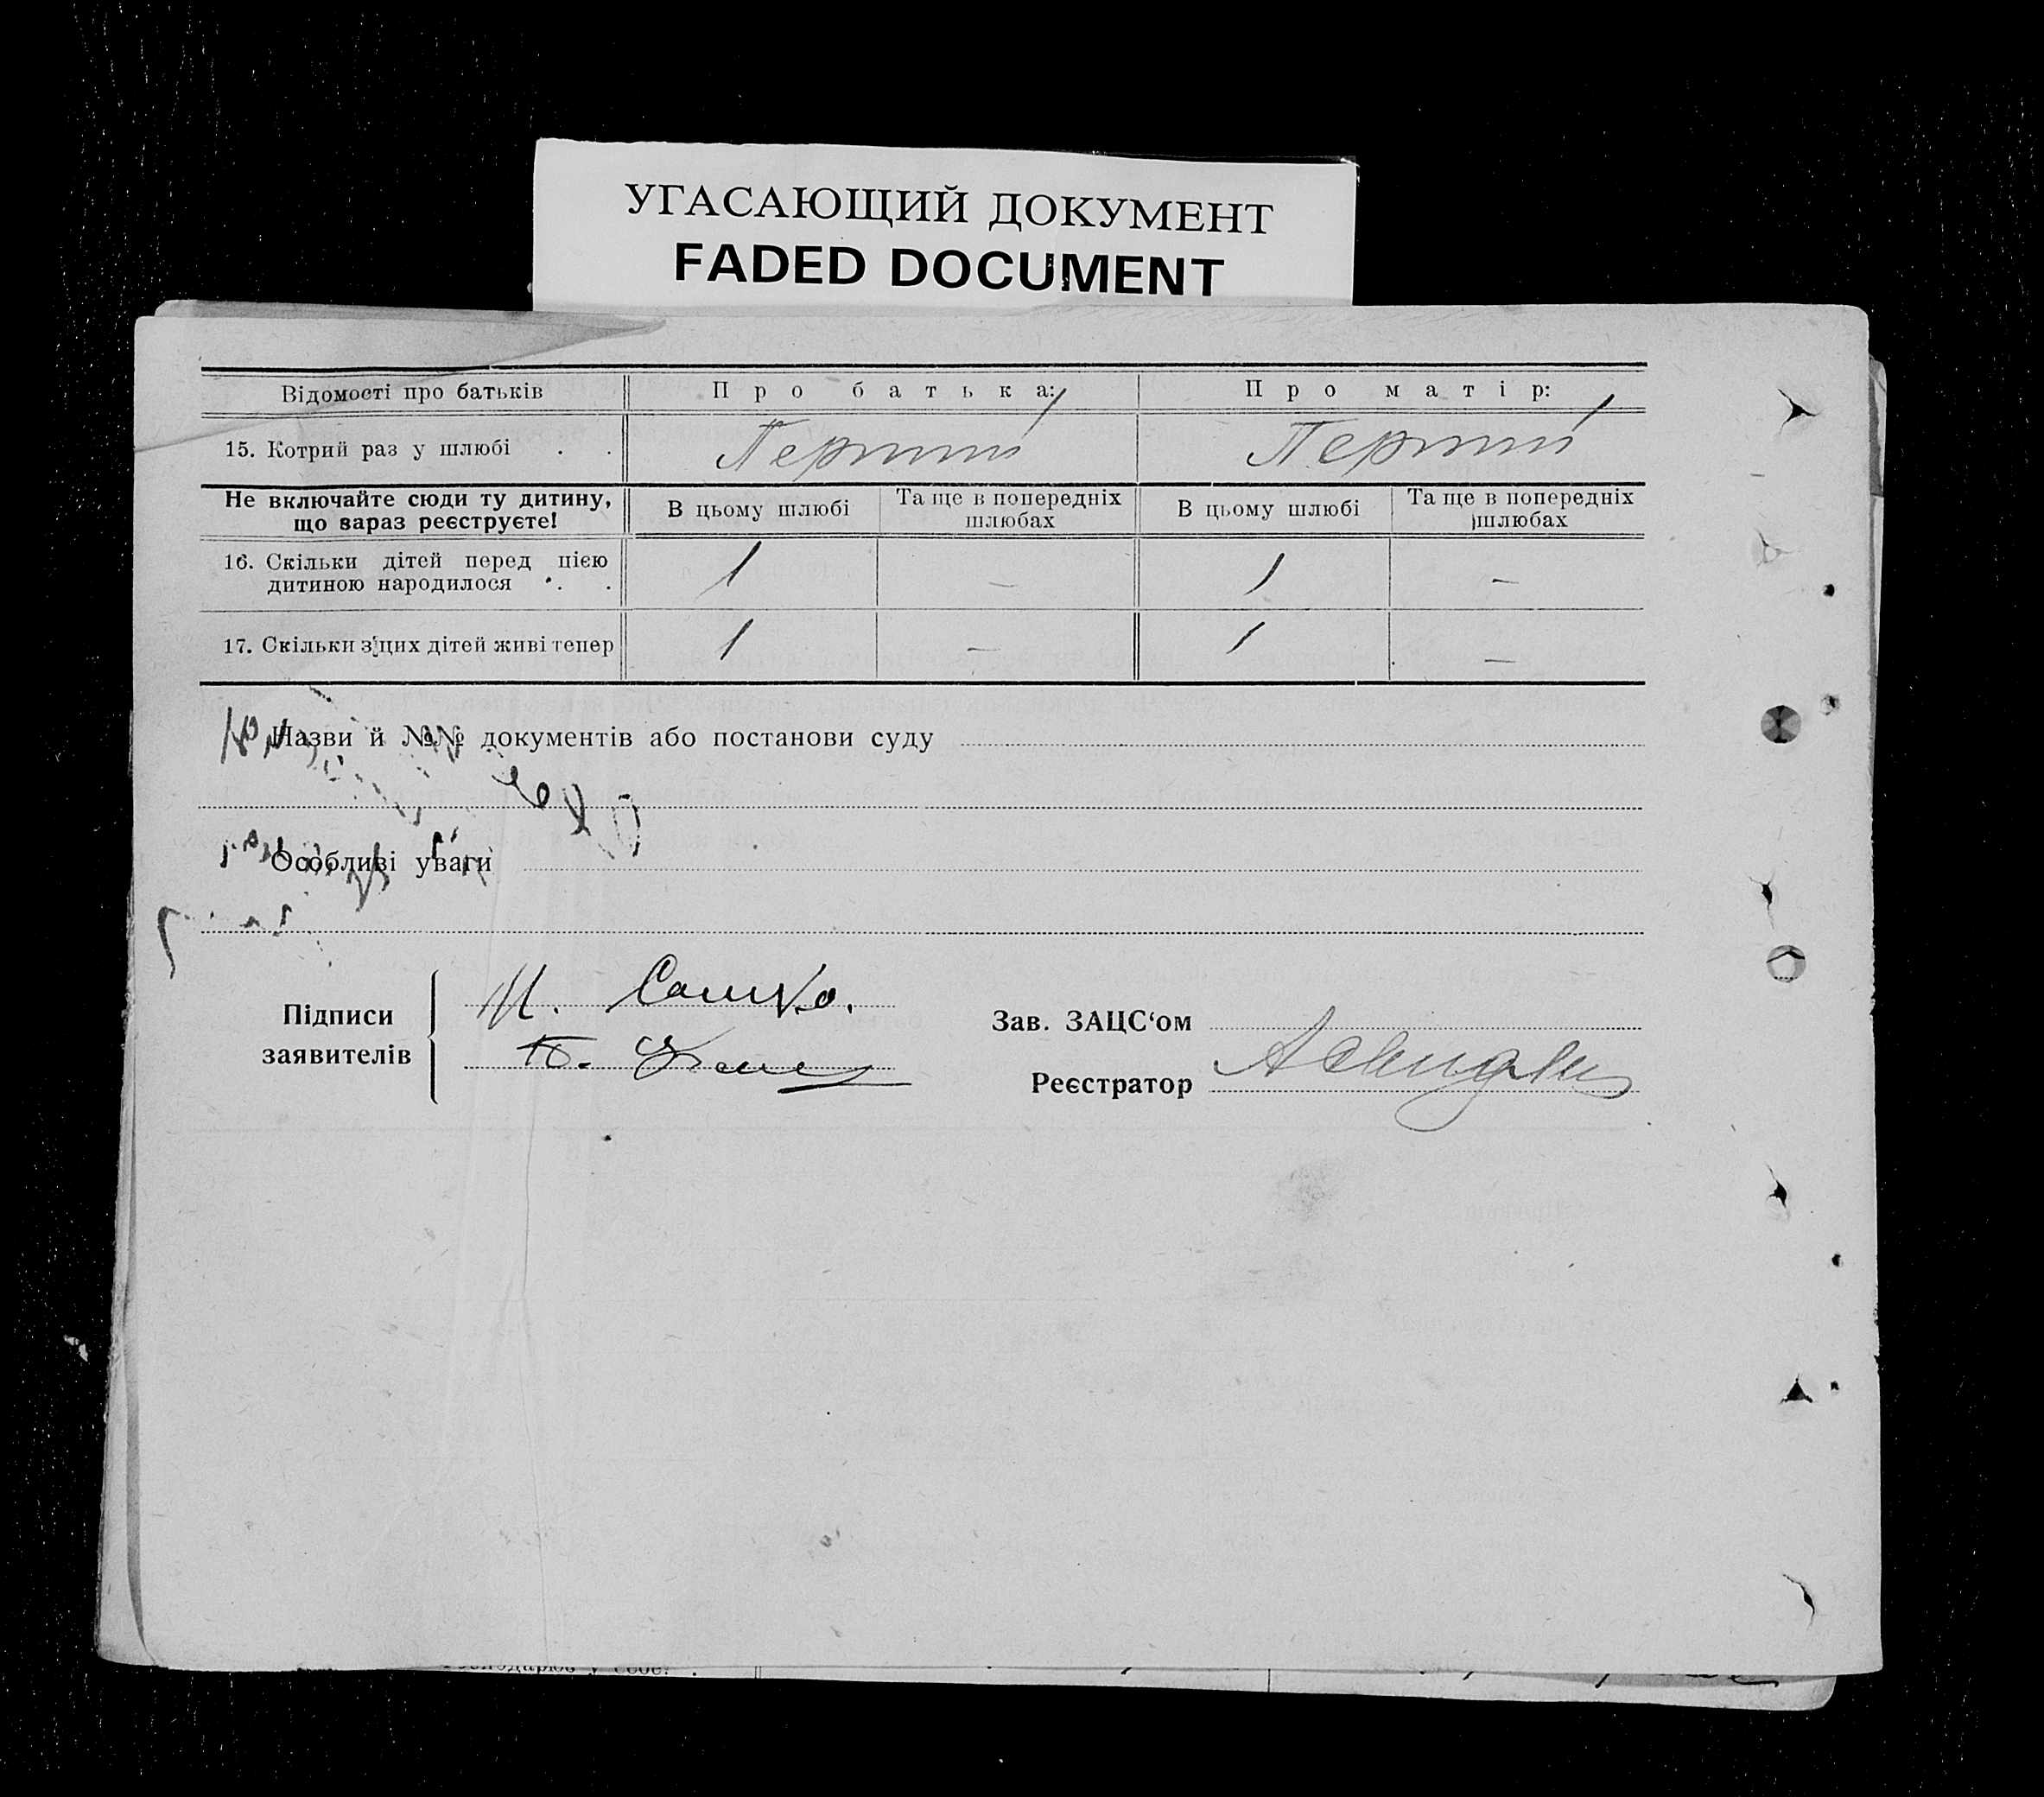 УГАСАЮЩИЙ ДОКУМЕНТ
FADED DOCUMENT
Відомості про батьків Про батька: Про матір:
15. Котрий раз у шлюбі . . Перший Перший
Не включайте сюди ту дитину, що зараз реєструєте! В цьому шлюбі Та ще в попередніх шлюбах В цьому шлюбі Та ще в попередніх шлюбах
16. Скільки дітей перед цією дитиною народилося . . 1 — 1 —
17. Скільки з цих дітей живі тепер 1 — 1 —
Назви й №№ документів або постанови суду
Особливі уваги
Підписи заявителів
Сашко.
Зав. ЗАЦС‘ом
Реєстратор